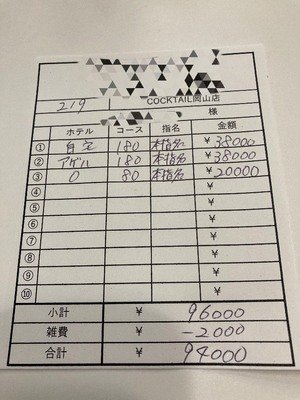 2/9
COCKTAIL岡山店
様
ホテル コース 指名 金額
① 自宅 180 本指名 ¥38000
② アゲル 180 本指名 ¥38000
③ 〇 80 本指名 ¥20000
④ ¥
⑤ ¥
⑥ ¥
⑦ ¥
⑧ ¥
⑨ ¥
⑩ ¥
小計 ¥ 96000
雑費 ¥ -2000
合計 ¥ 94000